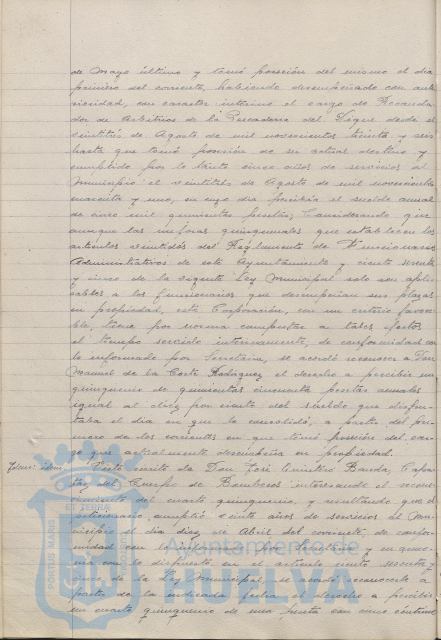 de Mayo último y tomó posesión del mismo el día
primero del corriente, habiendo desempeñado con ante
rioridad, con caracter interino el cargo de Recauda
dor de Arbitrios de la Pescadería del Dique desde el
veintitrés de Agosto de mil novecientos treinta y seis
hasta que tomó posesión de su actual destino y
cumplido por lo tanto cinco años de servicios al
Municipio el veintitrés de Agosto de mil novecientos
cuarenta y uno, en cuyo día percibía el sueldo anual
de cinco mil quinientas pesetas; Considerando que
aunque las mejoras quinquenales que establecen los
artículos veintidós del Reglamento de Funcionarios
Administrativos de este Ayuntamiento y ciento sesenta
y cinco de la vigente Ley Municipal solo son apli-
cables a los funcionarios que desempeñan sus plazas
en propiedad, esta Corporación, con un criterio favora
ble, tiene por norma computar a tales efectos
el tiempo servido interinamente, de conformidad con
lo informado por Secretaría, se acordó reconocer a Don
Manuel de la Corte Rodríguez el derecho a percibir un
quinquenio de quinientas cincuenta pesetas anuales
igual al diez por ciento del sueldo que disfru-
taba el día en que lo consolidó, a partir del pri-
mero de los corrientes en que tomó posesión del car-
go que actualmente desempeña en propiedad.
Idem: idem
Visto escrito de Don José Banda, Capa-
taz del Cuerpo de Bomberos interesando el recono-
cimiento del cuarto quinquenio, y resultando que el
peticionario cumplió veinte años de servicios al Mu-
nicipio el día diez de Abril del corriente, de confor-
midad con lo informado por Secretaría y en armo-
nía con lo dispuesto en el artículo ciento sesenta y
cinco de la Ley Municipal, se acordó reconocerle a
partir de la indicada fecha el derecho a percibir
un cuarto quinquenio de una peseta con cinco céntimos
PORTUS MARIS
ET TERRAE
CUSTODIA
Ayuntamiento de
HUELVA